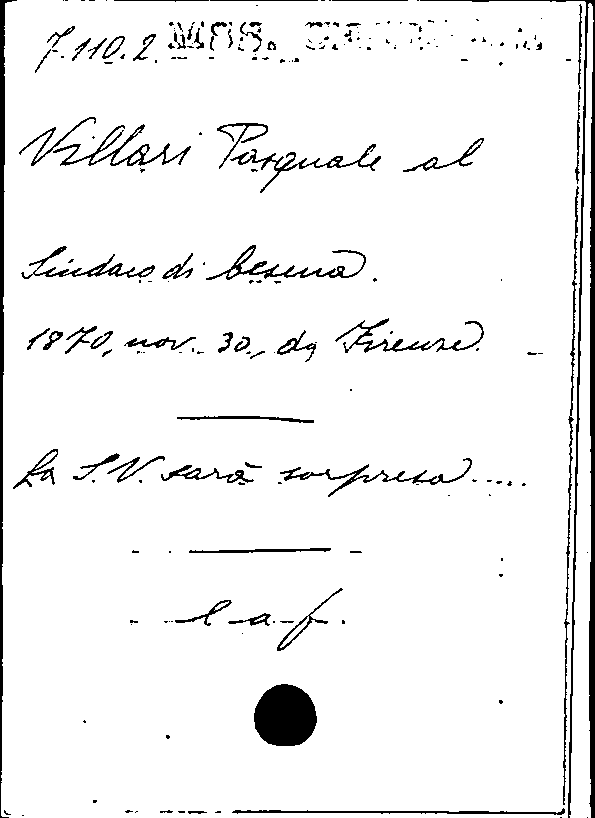 7.110.2 MSS.
Villari Pasquale al
Sindaco di Cesena.
1870, nov. 30, da Firenze.
La S.V. sarà sorpresa.....
l a f.